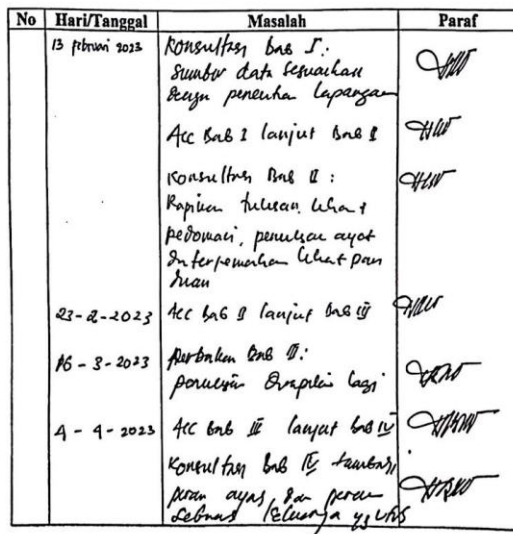 No Hari/Tanggal Masalah Paraf
13 februari 2023 Konsultasi bab I:
Sumber data sesuaikan
dengan penelitian lapangan
Acc Bab I lanjut Bab II
Konsultasi Bab II:
Rapikan tulisan. Lihat
pedoman, penulisan ayat
dan terjemahan lihat pan
duan
23-2-2023 Acc Bab II lanjut Bab III
16-3-2023 Perbaikan Bab III:
penulisan dirapikan lagi
4-4-2023 Acc Bab III lanjut bab IV
Konsultasi Bab IV
peran ayah, dan peran
keluarga yg